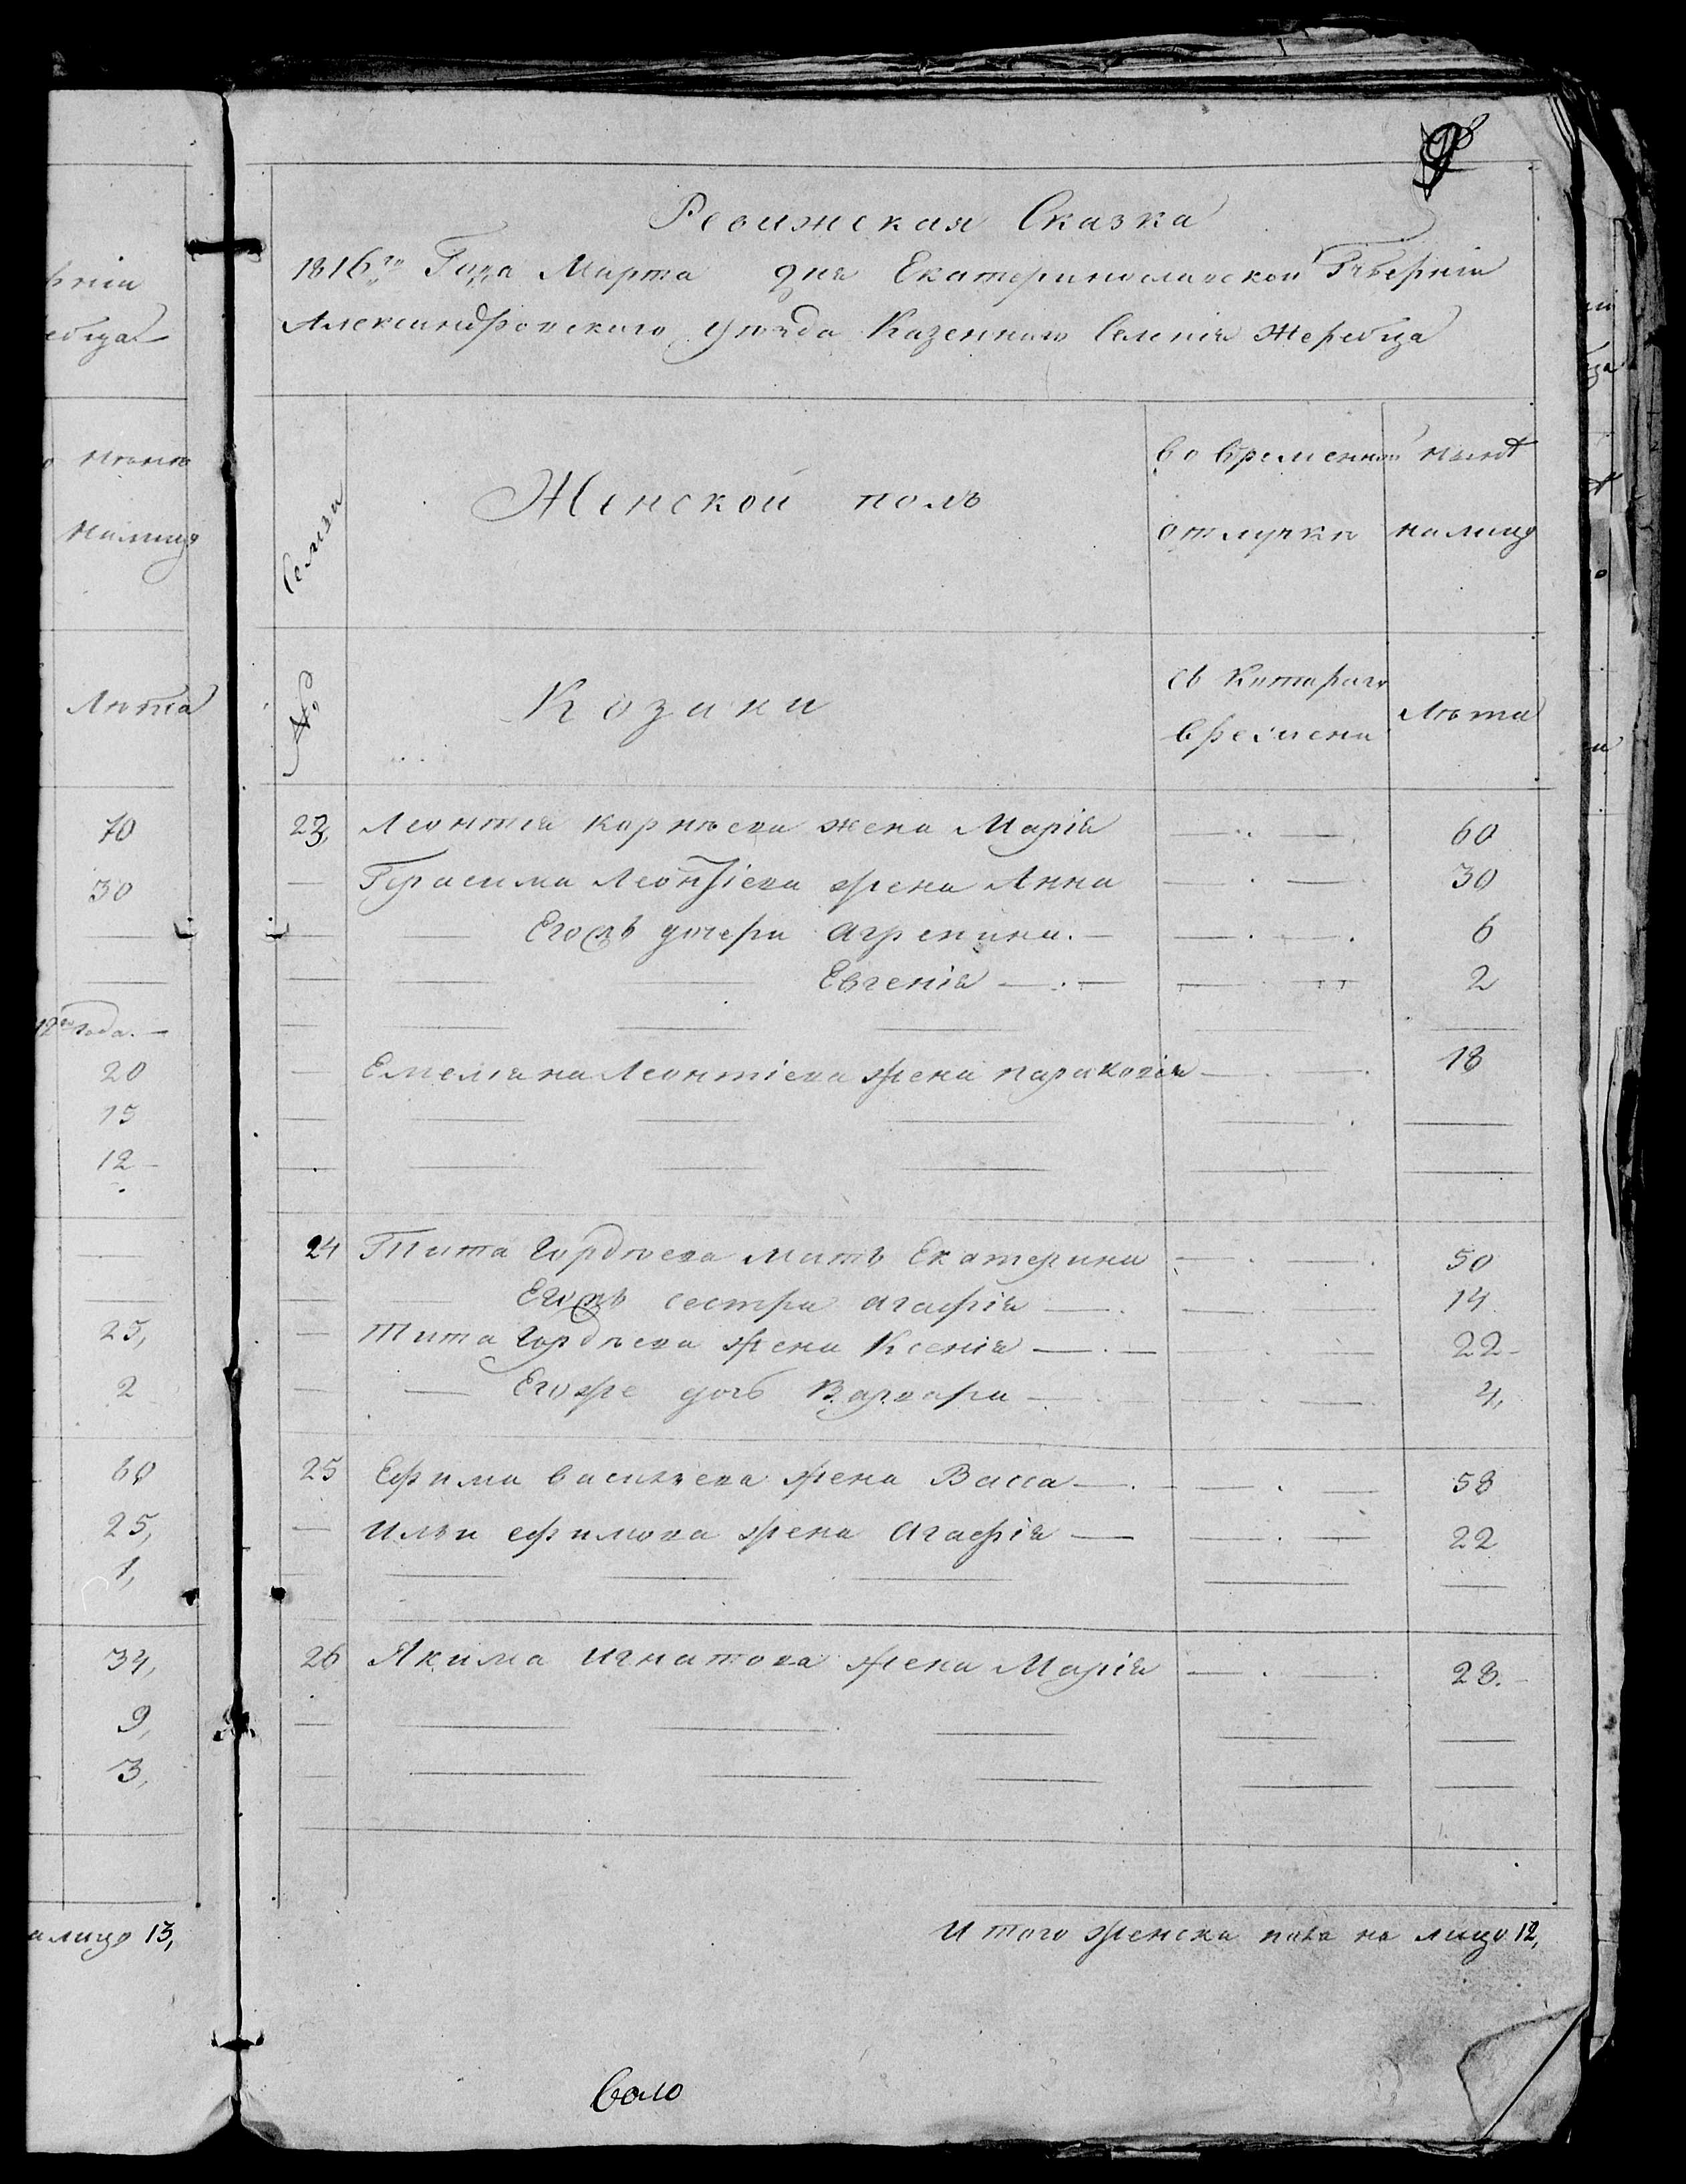 Ревижская Сказка
1816го Года Марта дня Екатеринославской Губернiи
Александровского уѣзда Казенного Селенiя Жеребца
Семьи
Женской полъ
во временной
отлучкѣ
нынѣ
налицо
№
Козаки
съ Котораго
времени
Лѣта
23, Леонтiя корнѣева жена Марiя 60
Герасима Леонтiева жена Анна 30
Егожъ дочери Агрепина. 6
Евгенiя 2
Емелiяна Леонтiева жена параковiя 18
24 Тита Гордѣева мать Екатерина 50
Егожъ сестра агафiя 14
Тита Гордѣева жена Ксенiя 22
Егоже дочь Варвара 4,
25 Ефима васильева жена Васса 58
Ильи ефимова жена агафiя 22
26 Якима игнатова жена Марiя 28.
Итого женска пола на лицо 12,
Лѣта
70
30
12го года.
20
15
12
25,
2
60
25,
1,
34,
9,
3,
алицо 13,